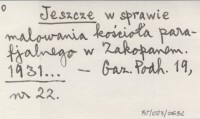 Jeszcze w sprawie
malowania kościoła para-
fjalnego w Zakopanem.
1931... — Gaz. Podh. 19,
nr 22.